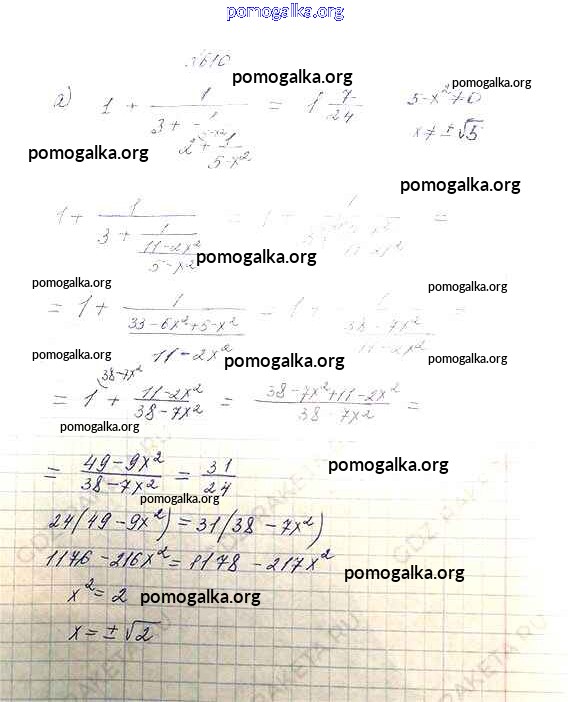 pomogalka.org
№610
pomogalka.org
pomogalka.org
а) 1 + 1/(3 + 1/(2 + 1/(5-x²))) = 1 7/24   5-x² ≠ 0
x ≠ ±√5
pomogalka.org
pomogalka.org
1 + 1/(3 + 1/((11-2x²)/(5-x²))) = 1 + =
pomogalka.org
pomogalka.org
pomogalka.org
= 1 + 1/((33-6x²+5-x²)/(11-2x²)) = 1 + 1/((38-7x²)/(11-2x²)) =
pomogalka.org
pomogalka.org
pomogalka.org
38-7x²
= 1 + (11-2x²)/(38-7x²) = (38-7x²+11-2x²)/(38-7x²) =
pomogalka.org
= (49-9x²)/(38-7x²) = 31/24
pomogalka.org
pomogalka.org
24(49-9x²) = 31(38-7x²)
1176-216x² = 1178-217x²
pomogalka.org
x² = 2
pomogalka.org
x = ±√2